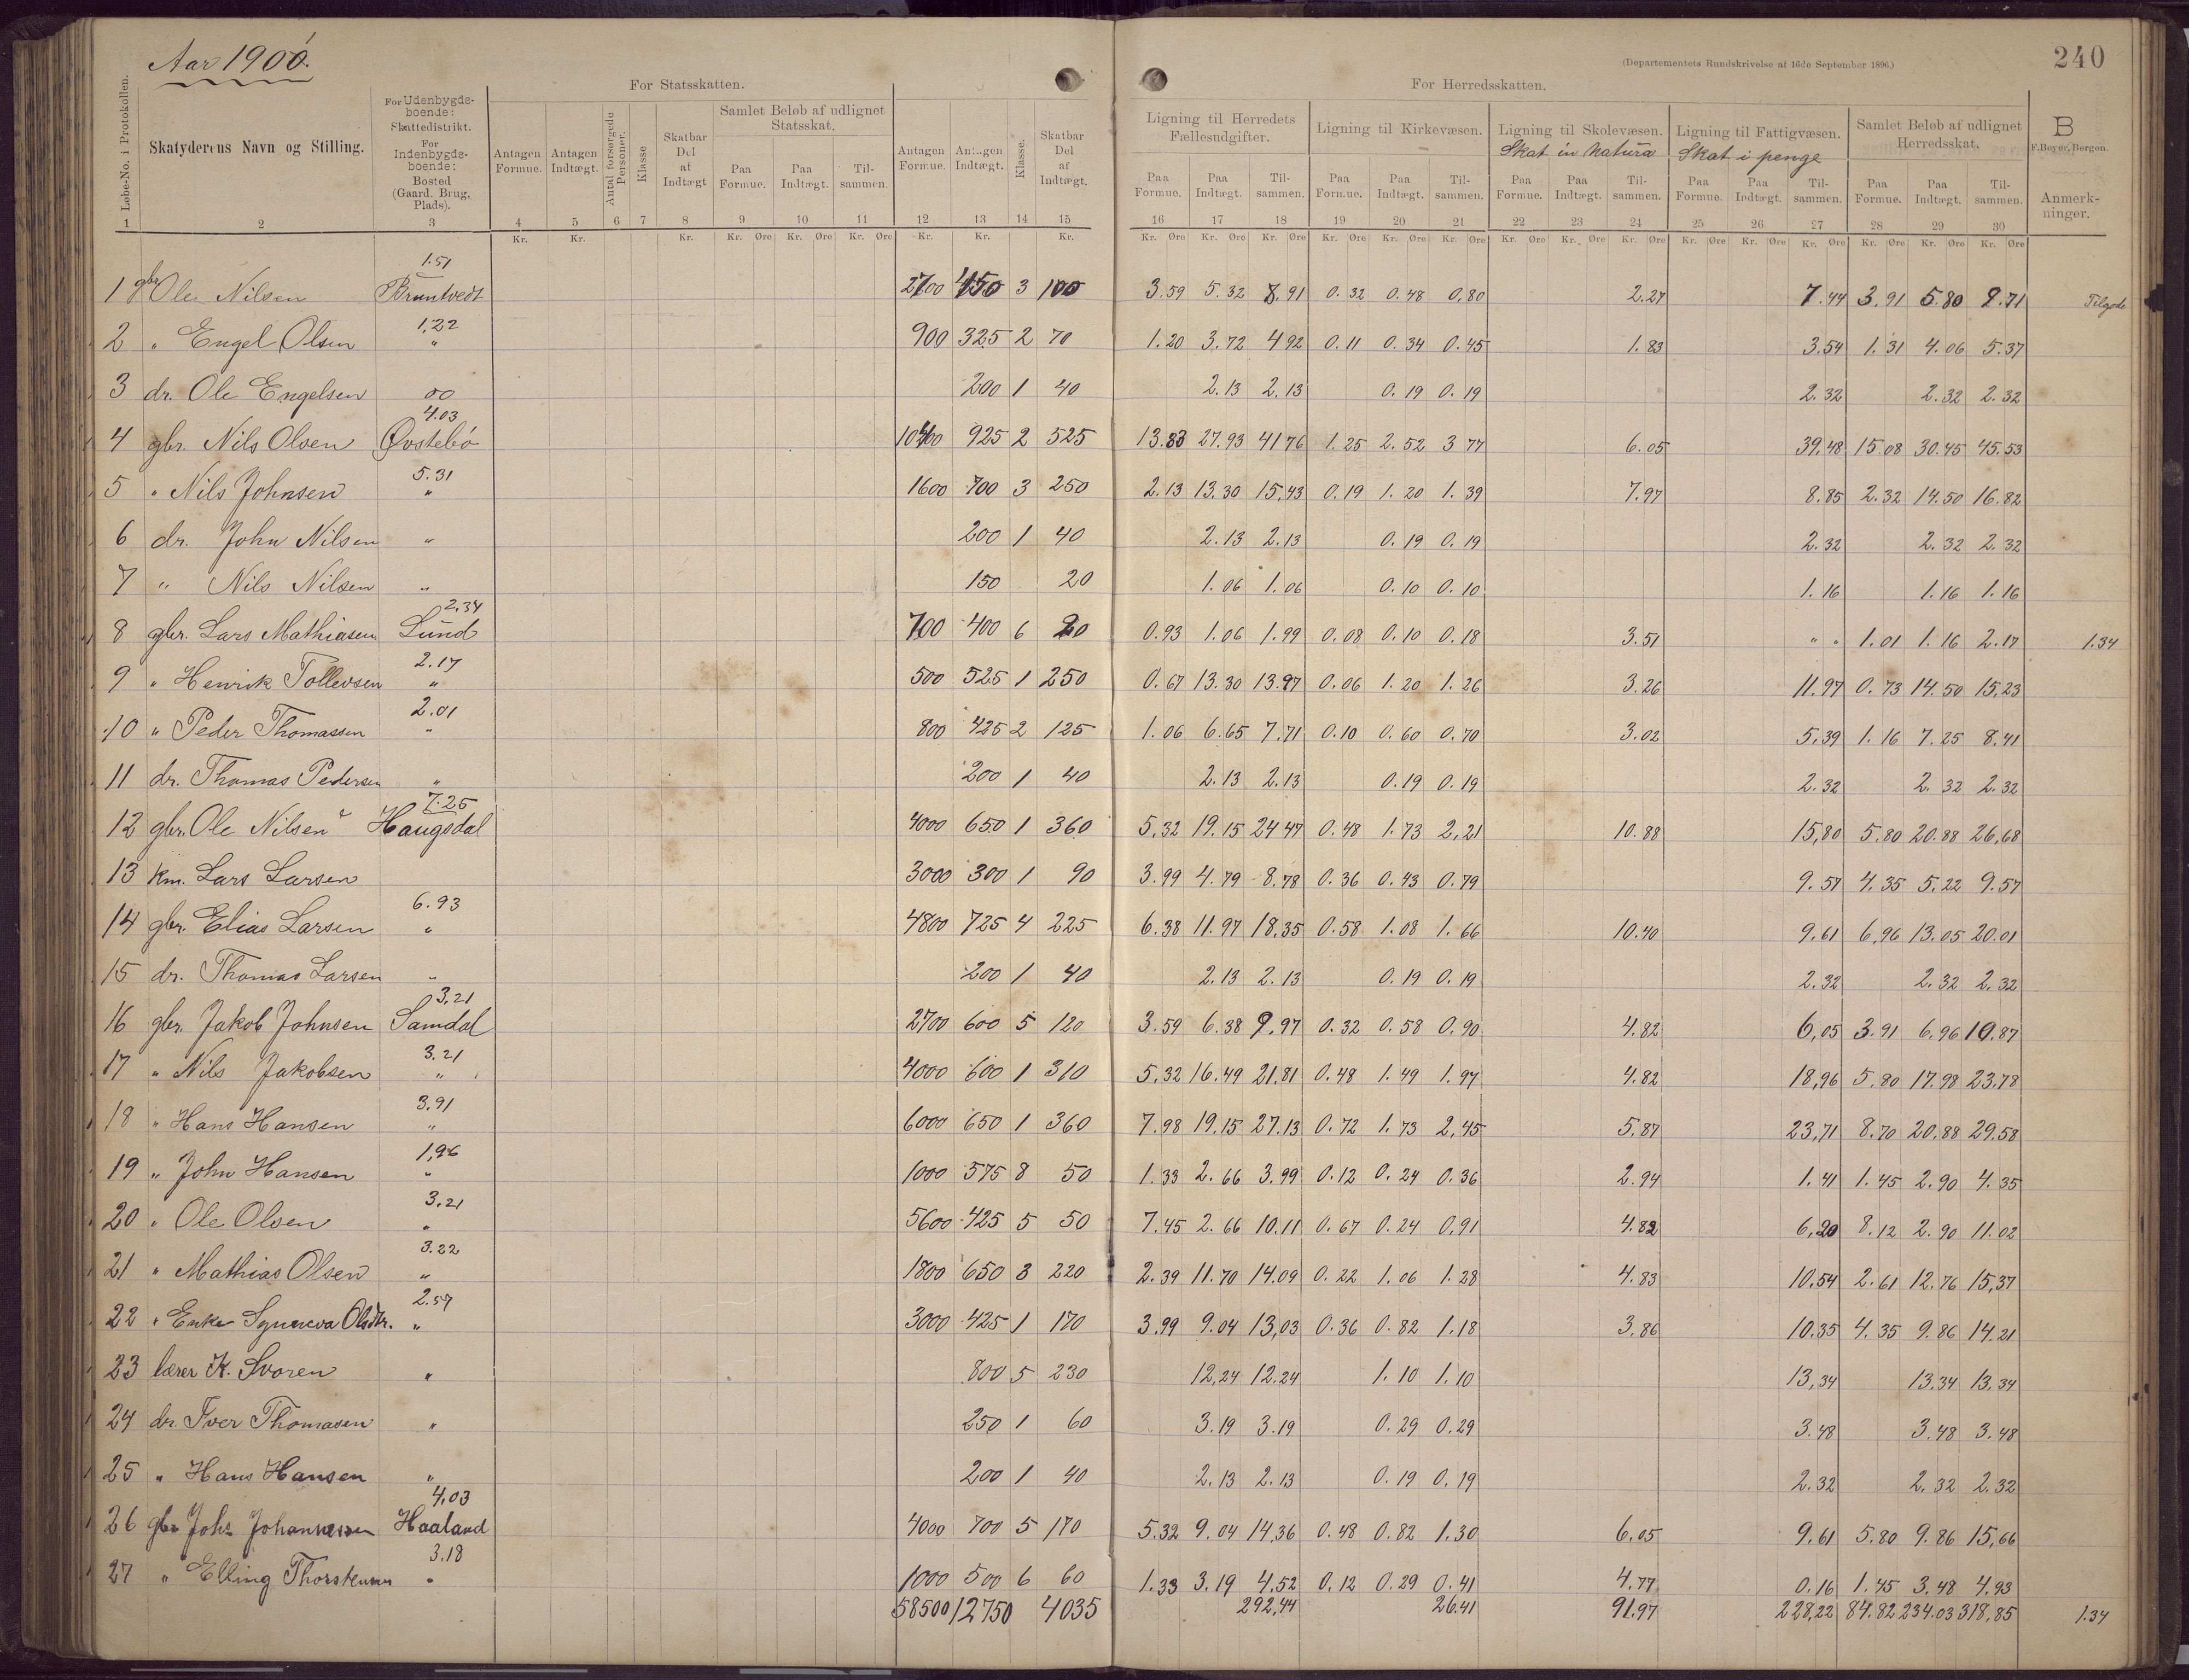 Aar 1900.
240
(Departementets Rundskrivelse af 16de September 1896.)
For Statsskatten. For Herredsskatten.
Løbe-No. i Protokollen. Skatyderens Navn og Stilling. For Udenbygdsboende: Skattedistrikt. For Indenbygdsboende: Bosted (Gaard, Brug, Plads). Antagen Formue. Antagen Indtægt. Antal forsørgede Personer. Klasse Skatbar Del af Indtægt Samlet Beløb af udlignet Statsskat. Antagen Formue. Antagen Indtægt. Klasse. Skatbar Del af Indtægt. Ligning til Herredets Fællesudgifter. Ligning til Kirkevæsen. Ligning til Skolevæsen. Skat in Natura Ligning til Fattigvæsen. Skat i penge Samlet Beløb af udlignet Herredsskat. B F. Beyer, Bergen. Anmerkninger.
Paa Formue. Paa Indtægt. Tilsammen. Paa Formue. Paa Indtægt. Tilsammen. Paa Formue. Paa Indtægt. Tilsammen. Paa Formue. Paa Indtægt. Tilsammen. Paa Formue. Paa Indtægt. Tilsammen. Paa Formue. Paa Indtægt. Tilsammen.
1 2 3 4 5 6 7 8 9 10 11 12 13 14 15 16 17 18 19 20 21 22 23 24 25 26 27 28 29 30
Kr. Kr. Kr. Kr. Øre Kr. Øre Kr. Øre Kr. Kr. Kr. Kr. Øre Kr. Øre Kr. Øre Kr. Øre Kr. Øre Kr. Øre Kr. Øre Kr. Øre Kr. Øre Kr. Øre Kr. Øre Kr. Øre Kr. Øre Kr. Øre Kr. Øre
1.51
1 gbr Ole Nilsen Bruntvedt 2700 450 3 100 3.59 5.32 8.91 0.32 0.48 0.80 2.27 7.44 3.91 5.80 9.71 Tilgode
1,22
2 " Engel Olsen " 900 325 2 70 1.20 3.72 4 92 0.11 0.34 0.45 1.83 3.54 1.31 4.06 5.37
3 dr. Ole Engelsen oo 200 1 40 2.13 2.13 0.19 0.19 2.32 2.32 2.32
4.03
4 gbr. Nils Olsen Øvstebö 10400 925 2 525 13.83 27.93 41 76 1.25 2.52 3 77 6.05 39,48 15.08 30.45 45.53
5.31
5 " Nils Johnsen " 1600 700 3 250 2.13 13.30 15,43 0.19 1.20 1.39 7.97 8.85 2.32 14.50 16.82
6 dr. John Nilsen " 200 1 40 2.13 2.13 0.19 0.19 2.32 2.32 2.32
7 " Nils Nilsen " 150 20 1.06 1.06 0.10 0.10 1.16 1.16 1.16
2,34
8 gbr. Lars Mathiasen Lund 700 400 6 20 0.93 1.06 1.99 0.08 0.10 0.18 3.51 " " 1.01 1.16 2.17 1.34
2.17
9 " Henrik Tollevsen " 500 525 1 250 0.67 13.30 13.97 0.06 1.20 1.26 3.26 11.97 0.73 14.50 15,23
2.01
10 " Peder Thomassen " 800 425 2 125 1.06 6.65 7.71 0.10 0.60 0.70 3.02 5,39 1.16 7.25 8,41
11 dr. Thomas Pedersen " 200 1 40 2.13 2.13 0.19 0.19 2.32 2.32 2.32
7.25
12 gbr. Ole Nilsen Haugsdal 4000 650 1 360 5,32 19.15 24 47 0.48 1.73 2,21 10.88 15,80 5.80 20.88 26,68
13 km. Lars Larsen 3000 300 1 90 3.99 4.79 8.78 0.36 0.43 0.79 9.57 4.35 5.22 9.57
6.93
14 gbr. Elias Larsen " 4800 725 4 225 6.38 11.97 18,35 0.58 1.08 1.66 10.40 9.61 6,96 13.05 20.01
15 dr. Thomas Larsen " 200 1 40 2.13 2.13 0.19 0.19 2.32 2.32 2.32
3,21
16 gbr. Jakob Johnsen Samdal 2700 600 5 120 3.59 6.38 9.97 0.32 0.58 0.90 4.82 6,05 3.91 6.96 10.87
3.21
17 " Nils Jakobsen " 4000 600 1 310 5.32 16.49 21.81 0.48 1.49 1.97 4.82 18,96 5.80 17.98 23.78
3.91
18 " Hans Hansen " 6000 650 1 360 7.98 19.15 27.13 0.72 1.73 2,45 5.87 23,71 8.70 20,88 29.58
1,96
19 " John Hansen " 1000 575 8 50 1.33 2.66 3.99 0.12 0.24 0.36 2.94 1.41 1.45 2.90 4.35
3,21
20 " Ole Olsen " 5600 425 5 50 7.45 2.66 10.11 0.67 0.24 0,91 4.82 6,20 8.12 2.90 11.02
3.22
21 " Mathias Olsen " 1800 650 3 220 2.39 11.70 14.09 0.22 1.06 1.28 4.83 10.54 2.61 12.76 15,37
2.57
22 " Enke Synneva Olsdtr. " 3000 425 1 170 3.99 9.04 13,03 0.36 0.82 1.18 3.86 10.35 4.35 9.86 14.21
23 lærer K. Svoren " 800 5 230 12,24 12.24 1.10 1.10 13,34 13.34 13,34
24 dr. Iver Thomasen " 250 1 60 3.19 3.19 0.29 0.29 3.48 3.48 3.48
25 " Hans Hansen " 200 1 40 2.13 2.13 0.19 0.19 2.32 2.32 2.32
4,03
26 gbr Johs Johannessen Haaland 4000 700 5 170 5.32 9.04 14,36 0.48 0.82 1.30 6.05 9.61 5.80 9.86 15,66
3.18
27 " Elling Thorstensen " 1000 500 6 60 1.33 3.19 4.52 0.12 0.29 0.41 4.77 0.16 1.45 3.48 4.93
58500 12750 4035 292,44 26.41 91.97 228,22 84.82 234.03 318,85 1.34